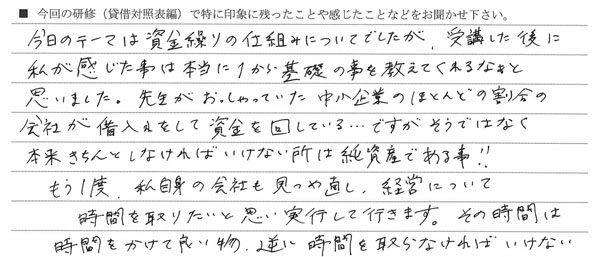 ■ 今回の研修（貸借対照表編）で特に印象に残ったことや感じたことなどをお聞かせ下さい。
今日のテーマは資金繰りの仕組みについてでしたが、受講した後に
私が感じた事は本当に1から基礎の事を教えてくれるなぁと
思いました。先生がおっしゃっていた中小企業のほとんどの割合の
会社が借入れをして資金を回している…ですがそうではなく
本来きちんとしなければいけない所は純資産である事!!
もう1度、私自身の会社も見つめ直し、経営について
時間を取りたいと思い実行して行きます。その時間は
時間をかけて良い物、逆に時間を取らなければいけない